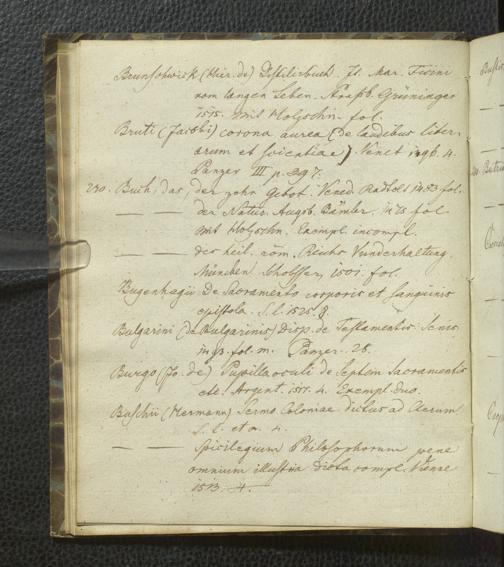 Brunschwick (Hier. de) Distilierbuch. It. Mar. Ficini
vom langen Leben. Straßb. Grüninger
1515. mit Holzschn. fol.
Bruti (Jacobi) corona aurea (de laudibus liter-
arum et scientiae). Venet 1496. 4.
Panzer III p.
230. Buch, das, der zehn Gebot. Vened Radtolt 1483 fol.
— — der Natur. Augsb. Bämler. fol
mit Holzschn. Exempl. incompl.
— — des heil. röm. Reichs Underhaltung.
München. Schobsser, 1501. fol.
Bugenhagii De Sacramento corporis et sanguinis
epistola. S. l. 1525. 8.
Bulgarini (de Bulgarinis) Disp. de Testamentis. Senes
fol. m. Panzer. 26.
Burgo (Jo. de) Pupilla oculi de septem Sacramentis
etc. Argent. 1517. 4. Exempl. duo.
Buschii (Hermann) Sermo Coloniae dictus ad Clerum
S. l. et a. 4.
— — Spicilegium Philosophorum pene
omnium illustria dicta compl. Vienne
1513. 4.